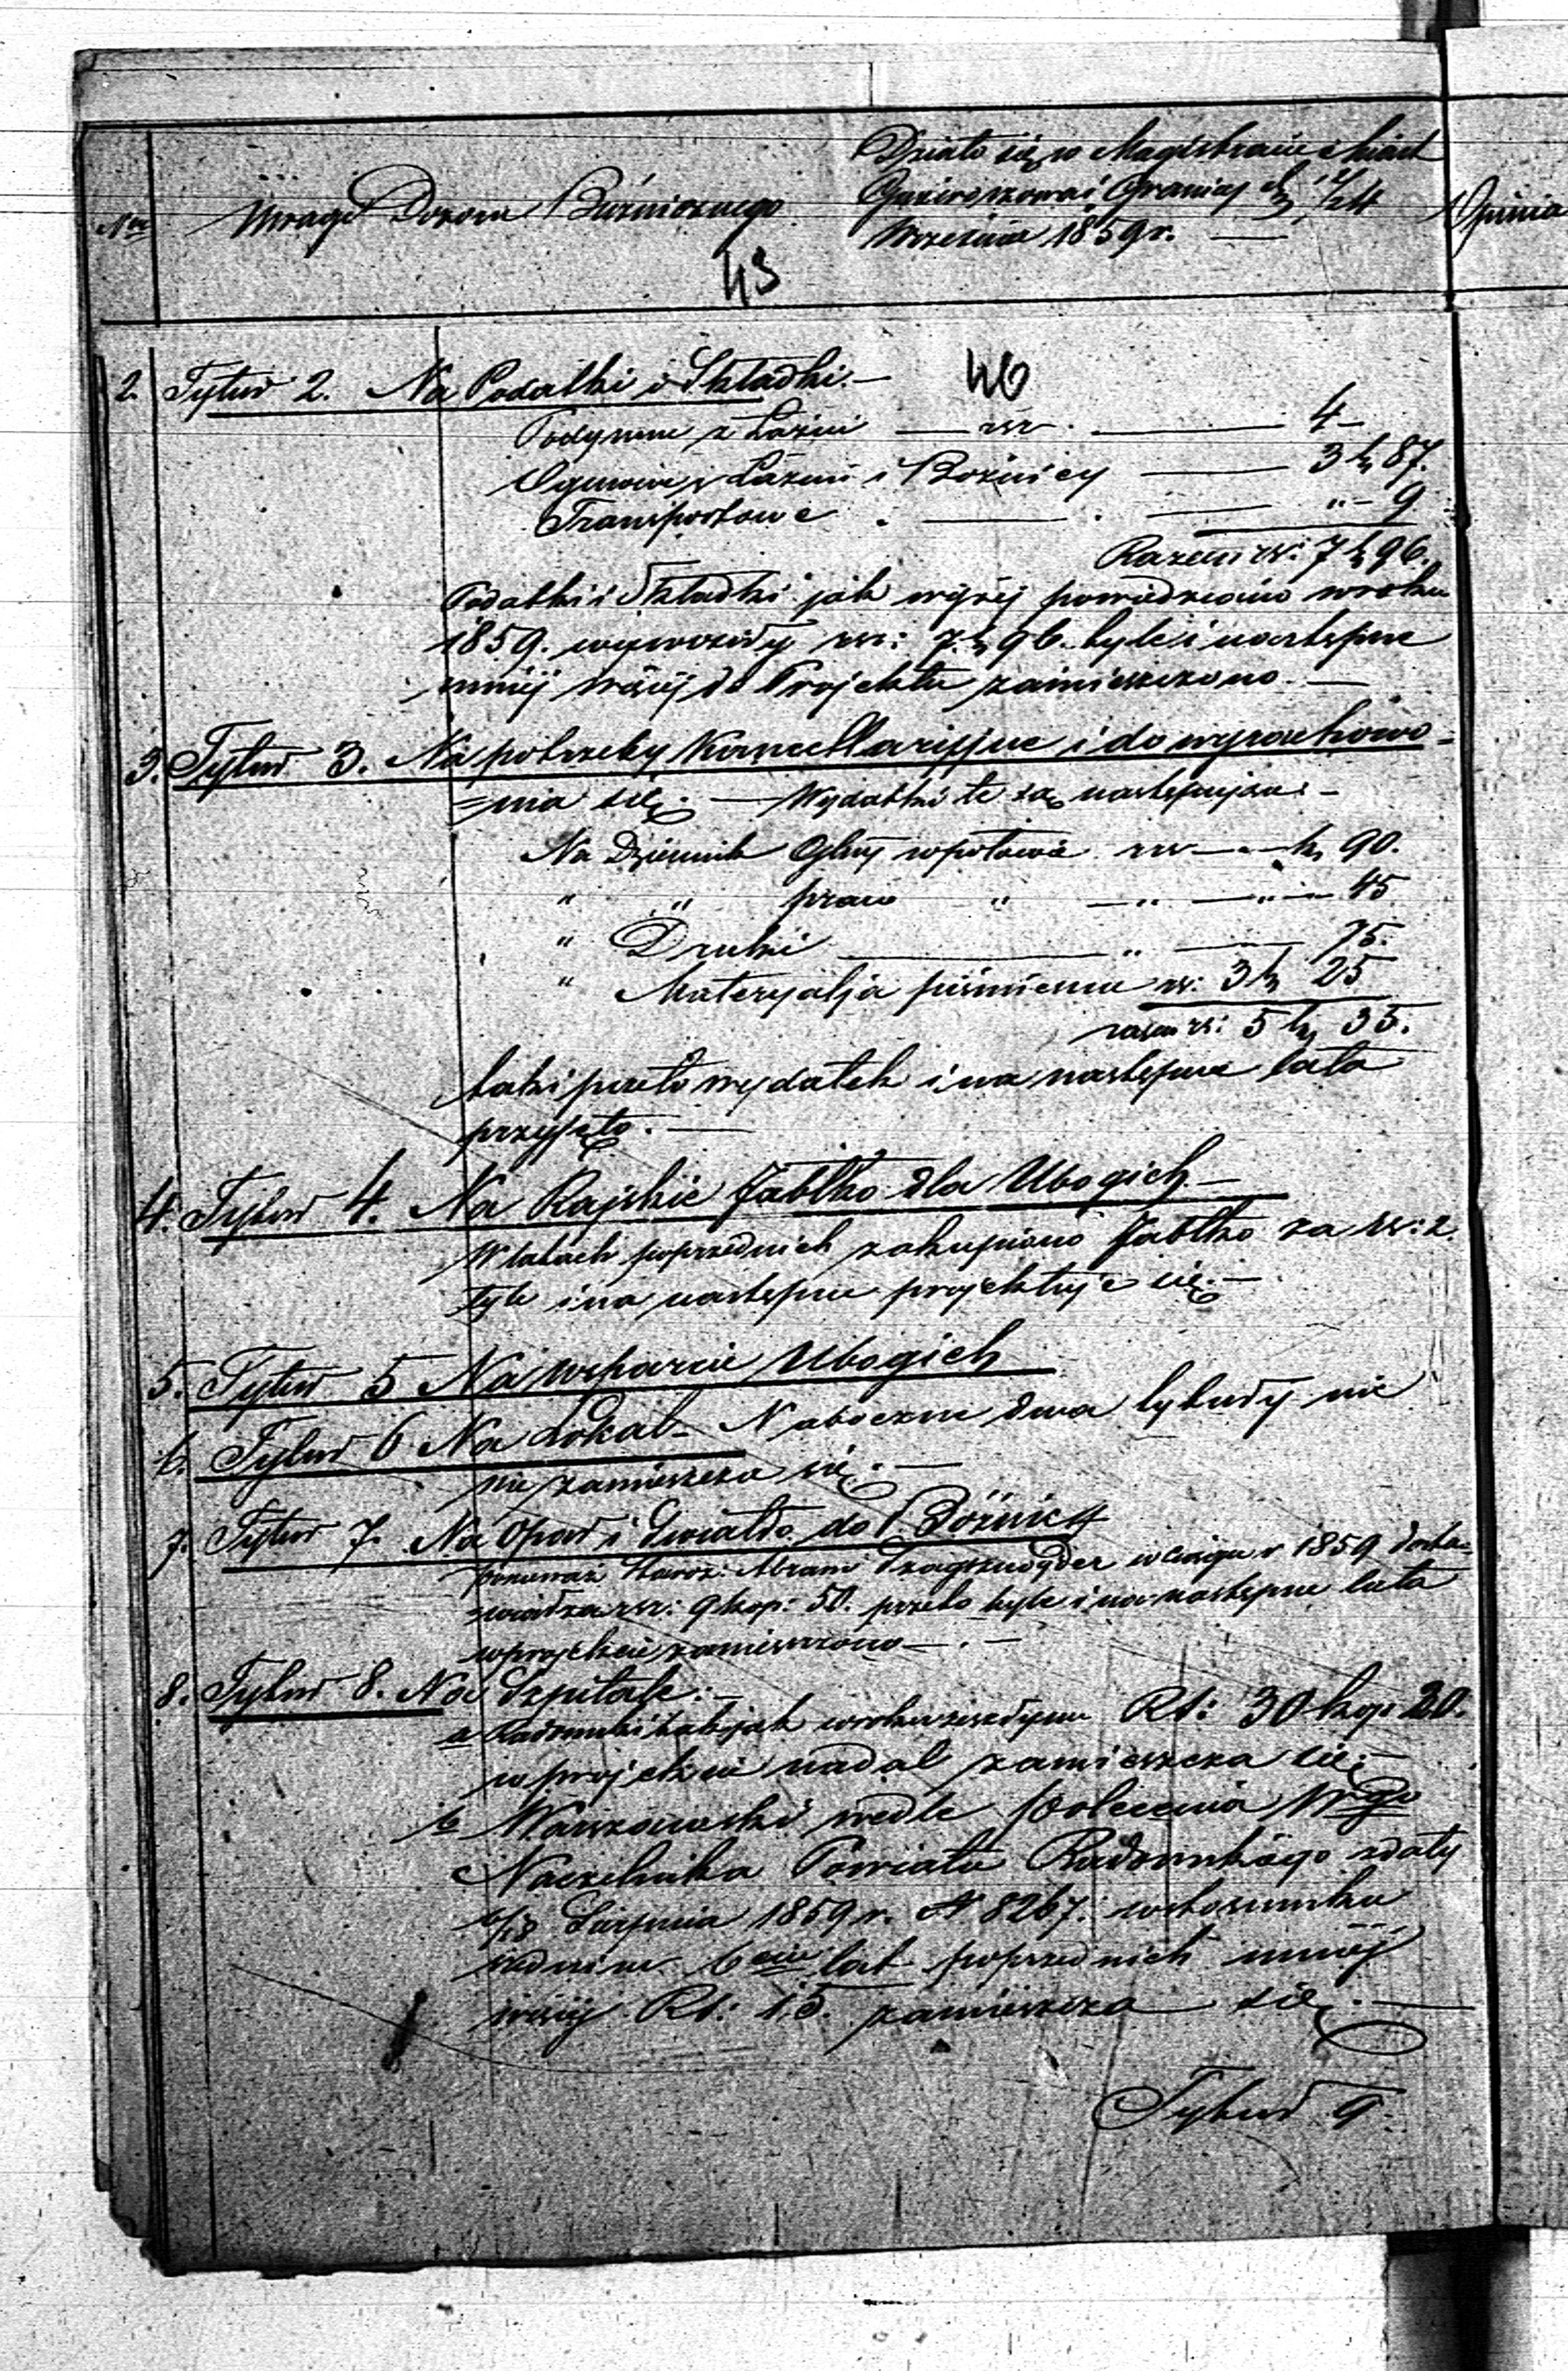 Nro
Uwagi Dozoru Bużnicznego
Działo się w Magistracie Miast
Granicy d. 12/24
Września 1859 r. —
Opinia
43
46
2. Tytuł 2. Na Podatki i Składki. —
Podymne z Łaźni — rsr. — 4 —
Ogniowe z Łaźni i Bożnicy — 3 k 87.
Transportowe . — . — " — 9
Razem rs: 7 k 96.
Podatki i Składki jak wyżej powiedziano w roku
1859. wynosiły rsr: 7. k 96. tyle i na następne
mniej więcej do Projektu zamieszczono. —
3. Tytuł 3. Na potrzeby Kancellaryjne i do wyrachowa-
=nia się. — Wydatki te są następujące: —
Na Dziennik Głny w połowie rsr — . — k, 90.
" " praw " — " — " — 45
" Druki — " — 75.
" Materyalja piśmienne rs: 3 k 25
razem rs: 5 k, 35.
taki przeto wydatek i na następne lata
przyjęto. —
4. Tytuł 4. Na Rajskie Jabłko dla Ubogich —
W latach poprzednich zakupiono Jabłko za rs: 2.
tyle i na następne projektuje się. —
5. Tytuł 5 Na wsparcie Ubogich
6. Tytuł 6 Na Lokal — Na oboczne dwa tytuły nic
nie zamieszcza się. —
7. Tytuł 7. Na Opał i Światło do Bóżnicy
ponieważ Staroz: Abram w ciągu r 1859 dosta=
za rsr: 9 kop: 50. przeto tyle i na następne lata
w projekcie zamieszczono — . —
8. Tytuł 8. Na Szpitale. —
a Radomski tak jak w roku zeszłym Rs: 30 kop: 20.
w projekcie nadal zamieszcza się. —
b Warszawski wedle polecenia Wgo
Naczelnika Powiatu Radomskiego z daty
Sierpnia 1859 r. N 8267. w stosunku
6ciu lat poprzednich mniej
więcej Rs: 15. zamieszcza się. —
Tytuł 9.